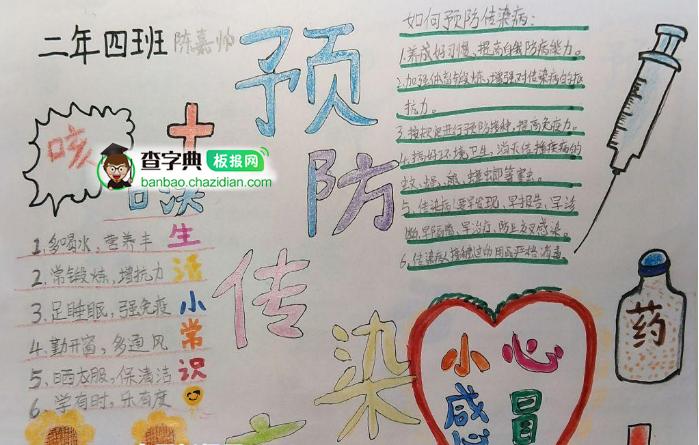 二年四班 陈嘉帅
预防传染
咳
查字典 板报网
banbao.chazidian.com
口诀
生活小常识
1、多喝水,营养丰
2、常锻炼,增抗力
3、足睡眠,强免疫
4、勤开窗,多通风
5、晒衣服,保清洁
6、学有时,乐有度
如何预防传染病:
1.养成好习惯,提高自我防病能力。
2.加强体育锻炼,增强对传染病的抵
抗力。
3、按规定进行预防接种,提高免疫力。
4、搞好环境卫生,消灭传播疾病的
蚊、蝇、鼠、蟑螂等害虫。
5、传染病要早发现,早报告,早诊
断,早隔离,早治疗,防止交叉感染。
6、传染病人接触过的用品严格消毒
药
小心
感冒